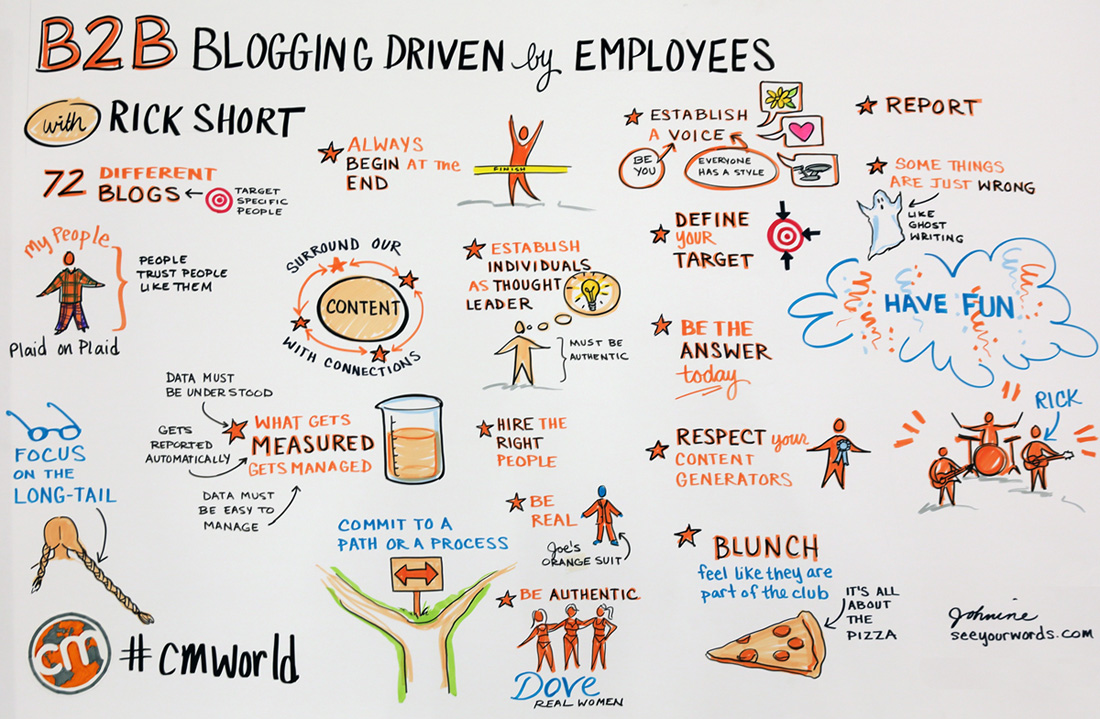 B2B BLOGGING DRIVEN by EMPLOYEES
with RICK SHORT
72 DIFFERENT
BLOGS
TARGET
SPECIFIC
PEOPLE
My People
PEOPLE
TRUST PEOPLE
LIKE THEM
Plaid on Plaid
ALWAYS
BEGIN AT the
END
FINISH
SURROUND OUR
CONTENT
WITH CONNECTIONS
ESTABLISH
INDIVIDUALS
AS THOUGHT
LEADER
MUST BE
AUTHENTIC
ESTABLISH
A VOICE
BE
YOU
EVERYONE
HAS A STYLE
DEFINE
YOUR
TARGET
BE THE
ANSWER
today
REPORT
SOME THINGS
ARE JUST WRONG
LIKE
GHOST
WRITING
HAVE FUN
RICK
FOCUS
ON THE
LONG-TAIL
DATA MUST
BE UNDERSTOOD
GETS
REPORTED
AUTOMATICALLY
DATA MUST
BE EASY TO
MANAGE
WHAT GETS
MEASURED
GETS MANAGED
HIRE THE
RIGHT
PEOPLE
RESPECT your
CONTENT
GENERATORS
COMMIT TO A
PATH OR A PROCESS
BE
REAL
Joe's
ORANGE SUIT
BE AUTHENTIC
Dove
REAL WOMEN
BLUNCH
feel like they are
part of the club
IT'S ALL
ABOUT
THE
PIZZA
cm
#cmworld
Johnine
seeyourwords.com